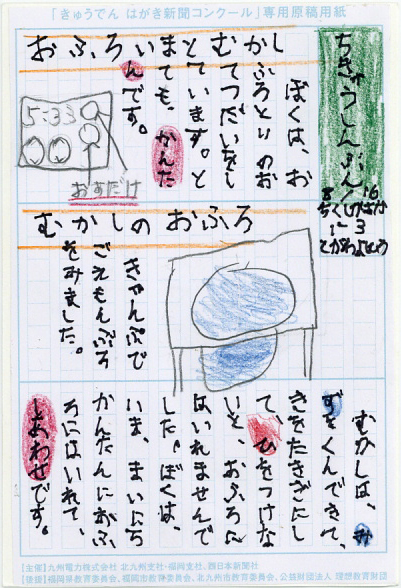 「きゅうでん はがき新聞コンクール」専用原稿用紙
ちきゅうしんぶん
おふろいまとむかし
ぼくは、お
ふろとりのお
てつだいをし
ています。と
ても、かんた
んです。
5:33
おすだけ
むかしのおふろ
きゃんぷで
ごえもんぶろ
をみました。
むかしは、み
ずをくんできて、
きをたきぎにし
て、ひをつけな
いと、おふろに
はいれませんで
した。ぼくは、
いま、まいにち
かんたんにおふ
ろにはいれて、
しあわせです。
【主催】九州電力株式会社 北九州支社・福岡支社、西日本新聞社
【後援】福岡県教育委員会、福岡市教育委員会、北九州市教育委員会、公益財団法人 理想教育財団